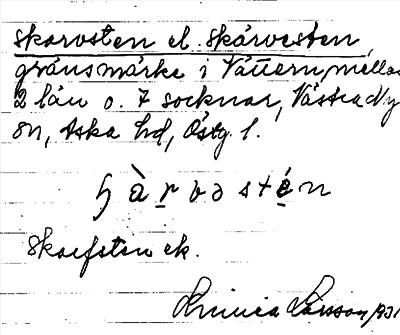 Skorvsten el. Skårvesten,
gränsmärke i Vättern, mellan
2 län o. 7 socknar, Västra Ny
sn, Aska hd, Östg. l.
ɧ à r v ə s t é n
Skorfsten ek.
Larsson, 1931